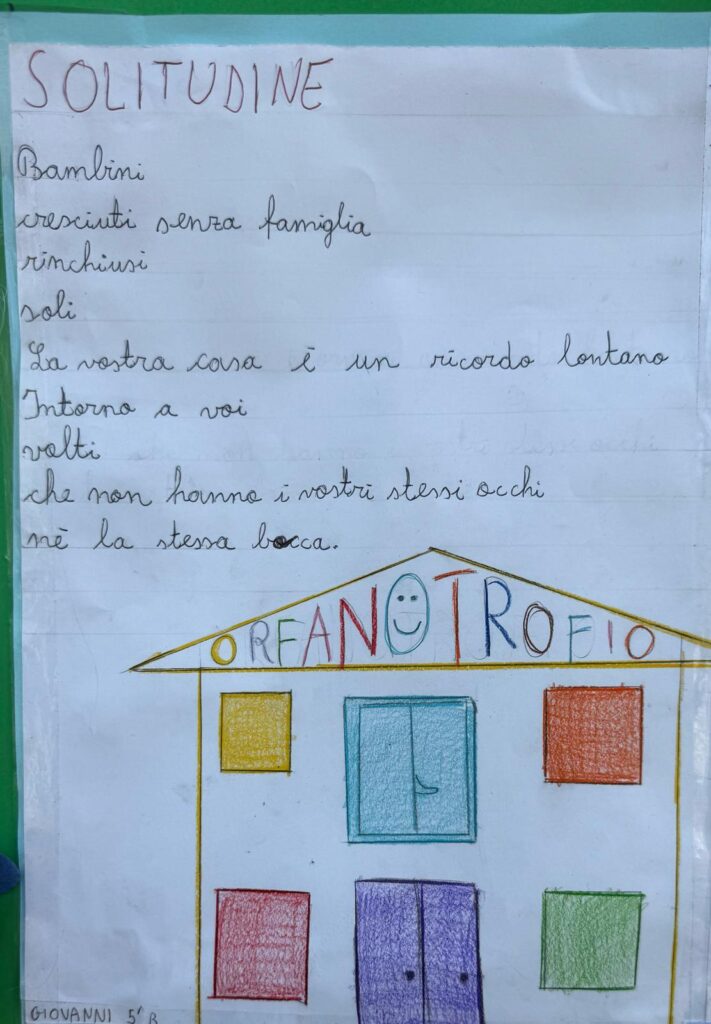 SOLITUDINE
Bambini
cresciuti senza famiglia
rinchiusi
soli
La vostra casa è un ricordo lontano
Intorno a voi
volti
che non hanno i vostri stessi occhi
nè la stessa bocca.
ORFANOTROFIO
GIOVANNI 5ª B